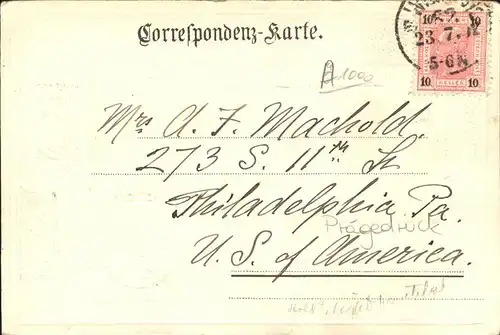 Correspondenz-Karte.
10 10
23.7.
5-6N
10 HELLER 10
A 1000
Mrs A. F. Machold.
273 S. 11th St
Philadelphia Pa.
Prägedruck
U. S. of America.